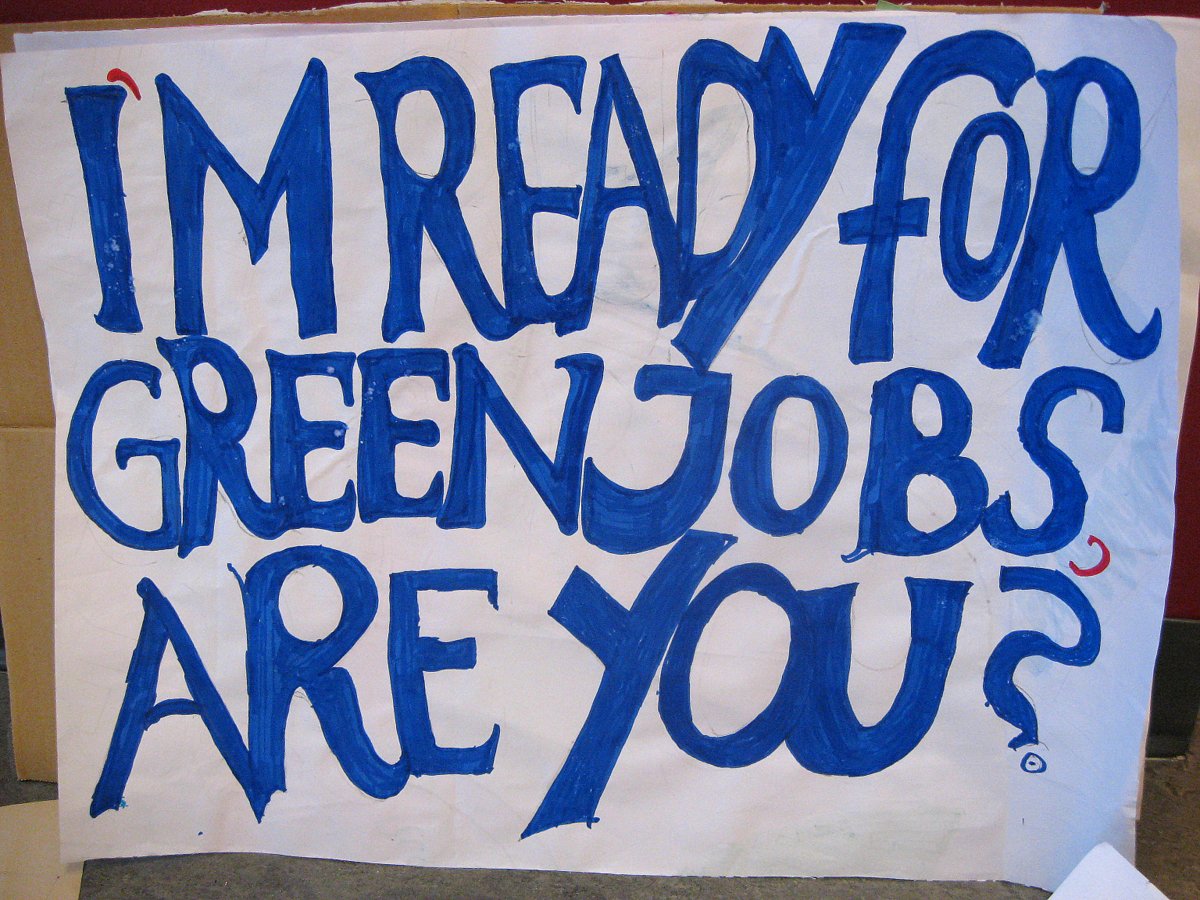 I'M READY FOR
GREEN JOBS,
ARE YOU?